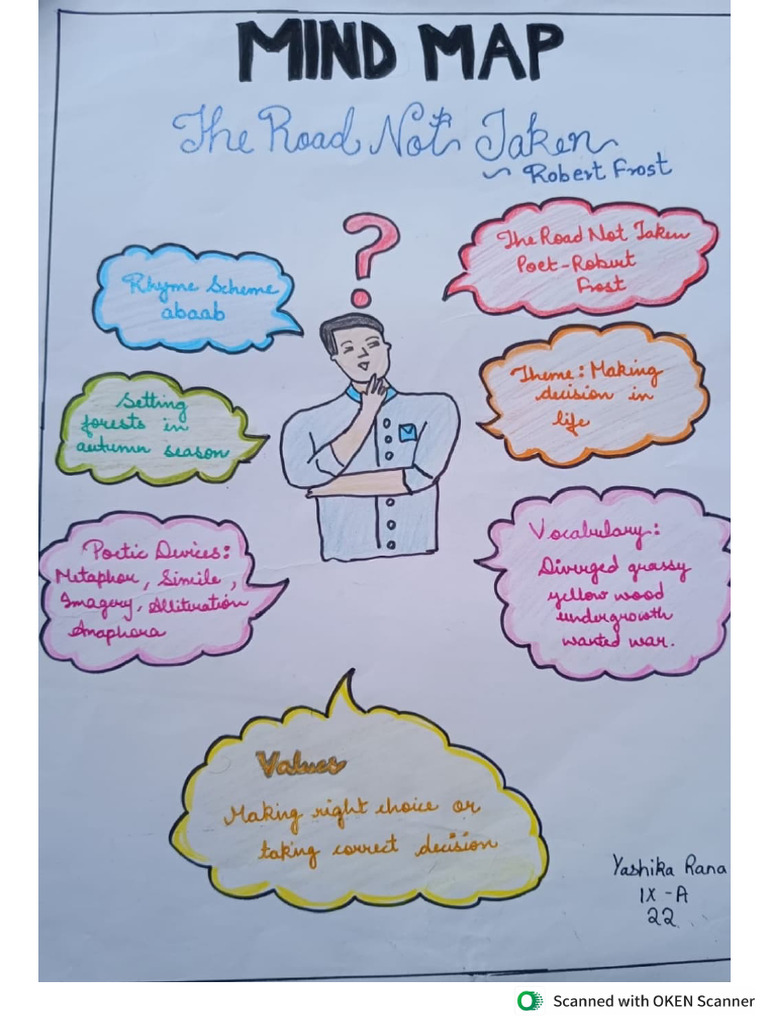 MIND MAP
The Road Not Taken
~ Robert Frost
Rhyme Scheme
abaab
The Road Not Taken
Poet-Robert
Frost
Setting
forests in
autumn season
Theme: Making
decision in
life
Poetic Devices:
Metaphor, Simile,
Imagery, Alliteration
Anaphora
Vocabulary:
Diverged grassy
yellow wood
undergrowth
wanted war.
Values
Making right choice or
taking correct decision
Yashika Rana
IX -A
22
Scanned with OKEN Scanner